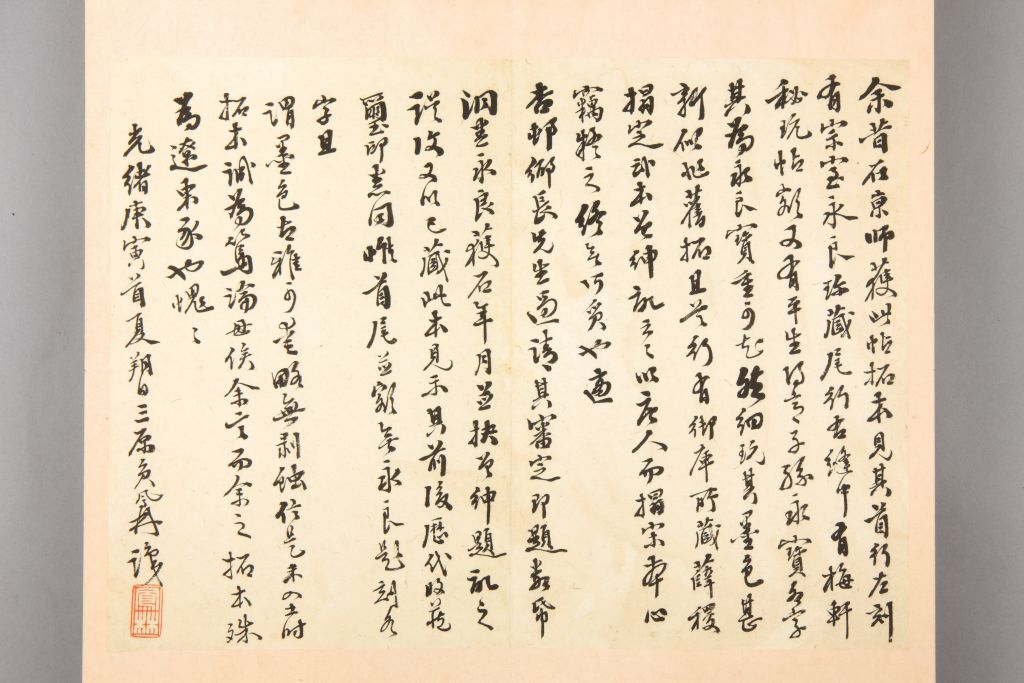 余昔在京師獲此帖拓本見其首行左刻
有宗室永良珍藏尾行右縫中有梅軒
秘玩帖額又有平生得意子孫永寶各字
其為永良寶重可知然細玩其墨色甚
新似非舊拓且首行有御庫所藏薛稷
搨定武本曾紳記云云以唐人而搨宋本心
竊疑之終無所質也適
杏邨鄉長先生過請其審定即題數帋
洞悉永良獲石年月並抉曾紳題記之
誤改又以己藏此本見示其前後歷代收藏
璽印悉同唯首尾並額無永良題刻各
字且
謂墨色古雅可愛略無剝蝕信是未 時
拓本誠為篤論毋俟余言而余之拓本殊
為遼東豕也愧愧
光緒庚寅首夏朔日三原 識